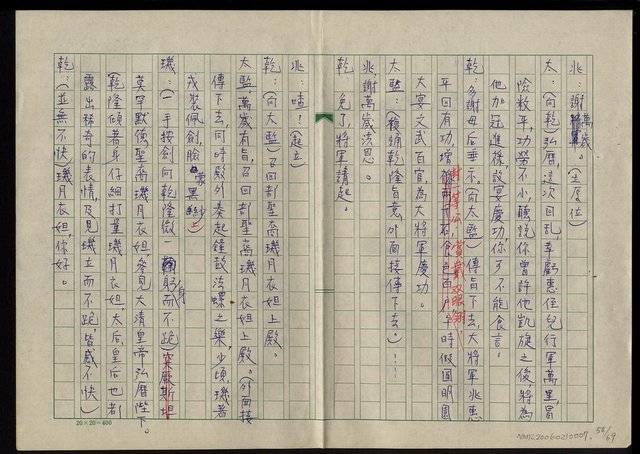 兆:謝萬歲。(坐原位)
太:(向乾)弘曆,這次回乱幸虧惠侄兒行軍萬里,冒
險敉平,功勞不小,聽説你曾許他凱旋之後,將為
他加冠進祿設宴慶功,你可不能食言。
乾:多謝母后垂示。(向大監)傳旨下去,大將軍兆惠
平回有功,封一等公,賞戴双眼翎,午時假圓明園
大宴文武百官為大將軍慶功。
太監:(複誦乾隆旨意,外面接傳下去。)……
兆:謝萬歲法恩。
乾:免了,將軍請起。
兆:喳!(起立)
乾:(向大監)召回部聖裔璣月衣妲上殿。
大監:萬歲有旨,召回部聖裔璣月衣妲上殿。(外面接
傳下去,同時殿外奏起鐘鼓法螺之樂,少頃,璣著
戎裝佩劍,臉蒙黑紗上)
璣:(一手按劍向乾隆微一躬身而不跪)
莫罕默德聖裔璣月衣妲參見大清皇帝弘曆陛下。
(乾隆傾著身仔細打量璣月衣妲,太后、皇后也都
露出稀奇的表情,及見璣立而不跪,皆感不快)
乾:(並無不快)璣月衣妲,你好。
20×20=400
NMTL20060210007
58/69